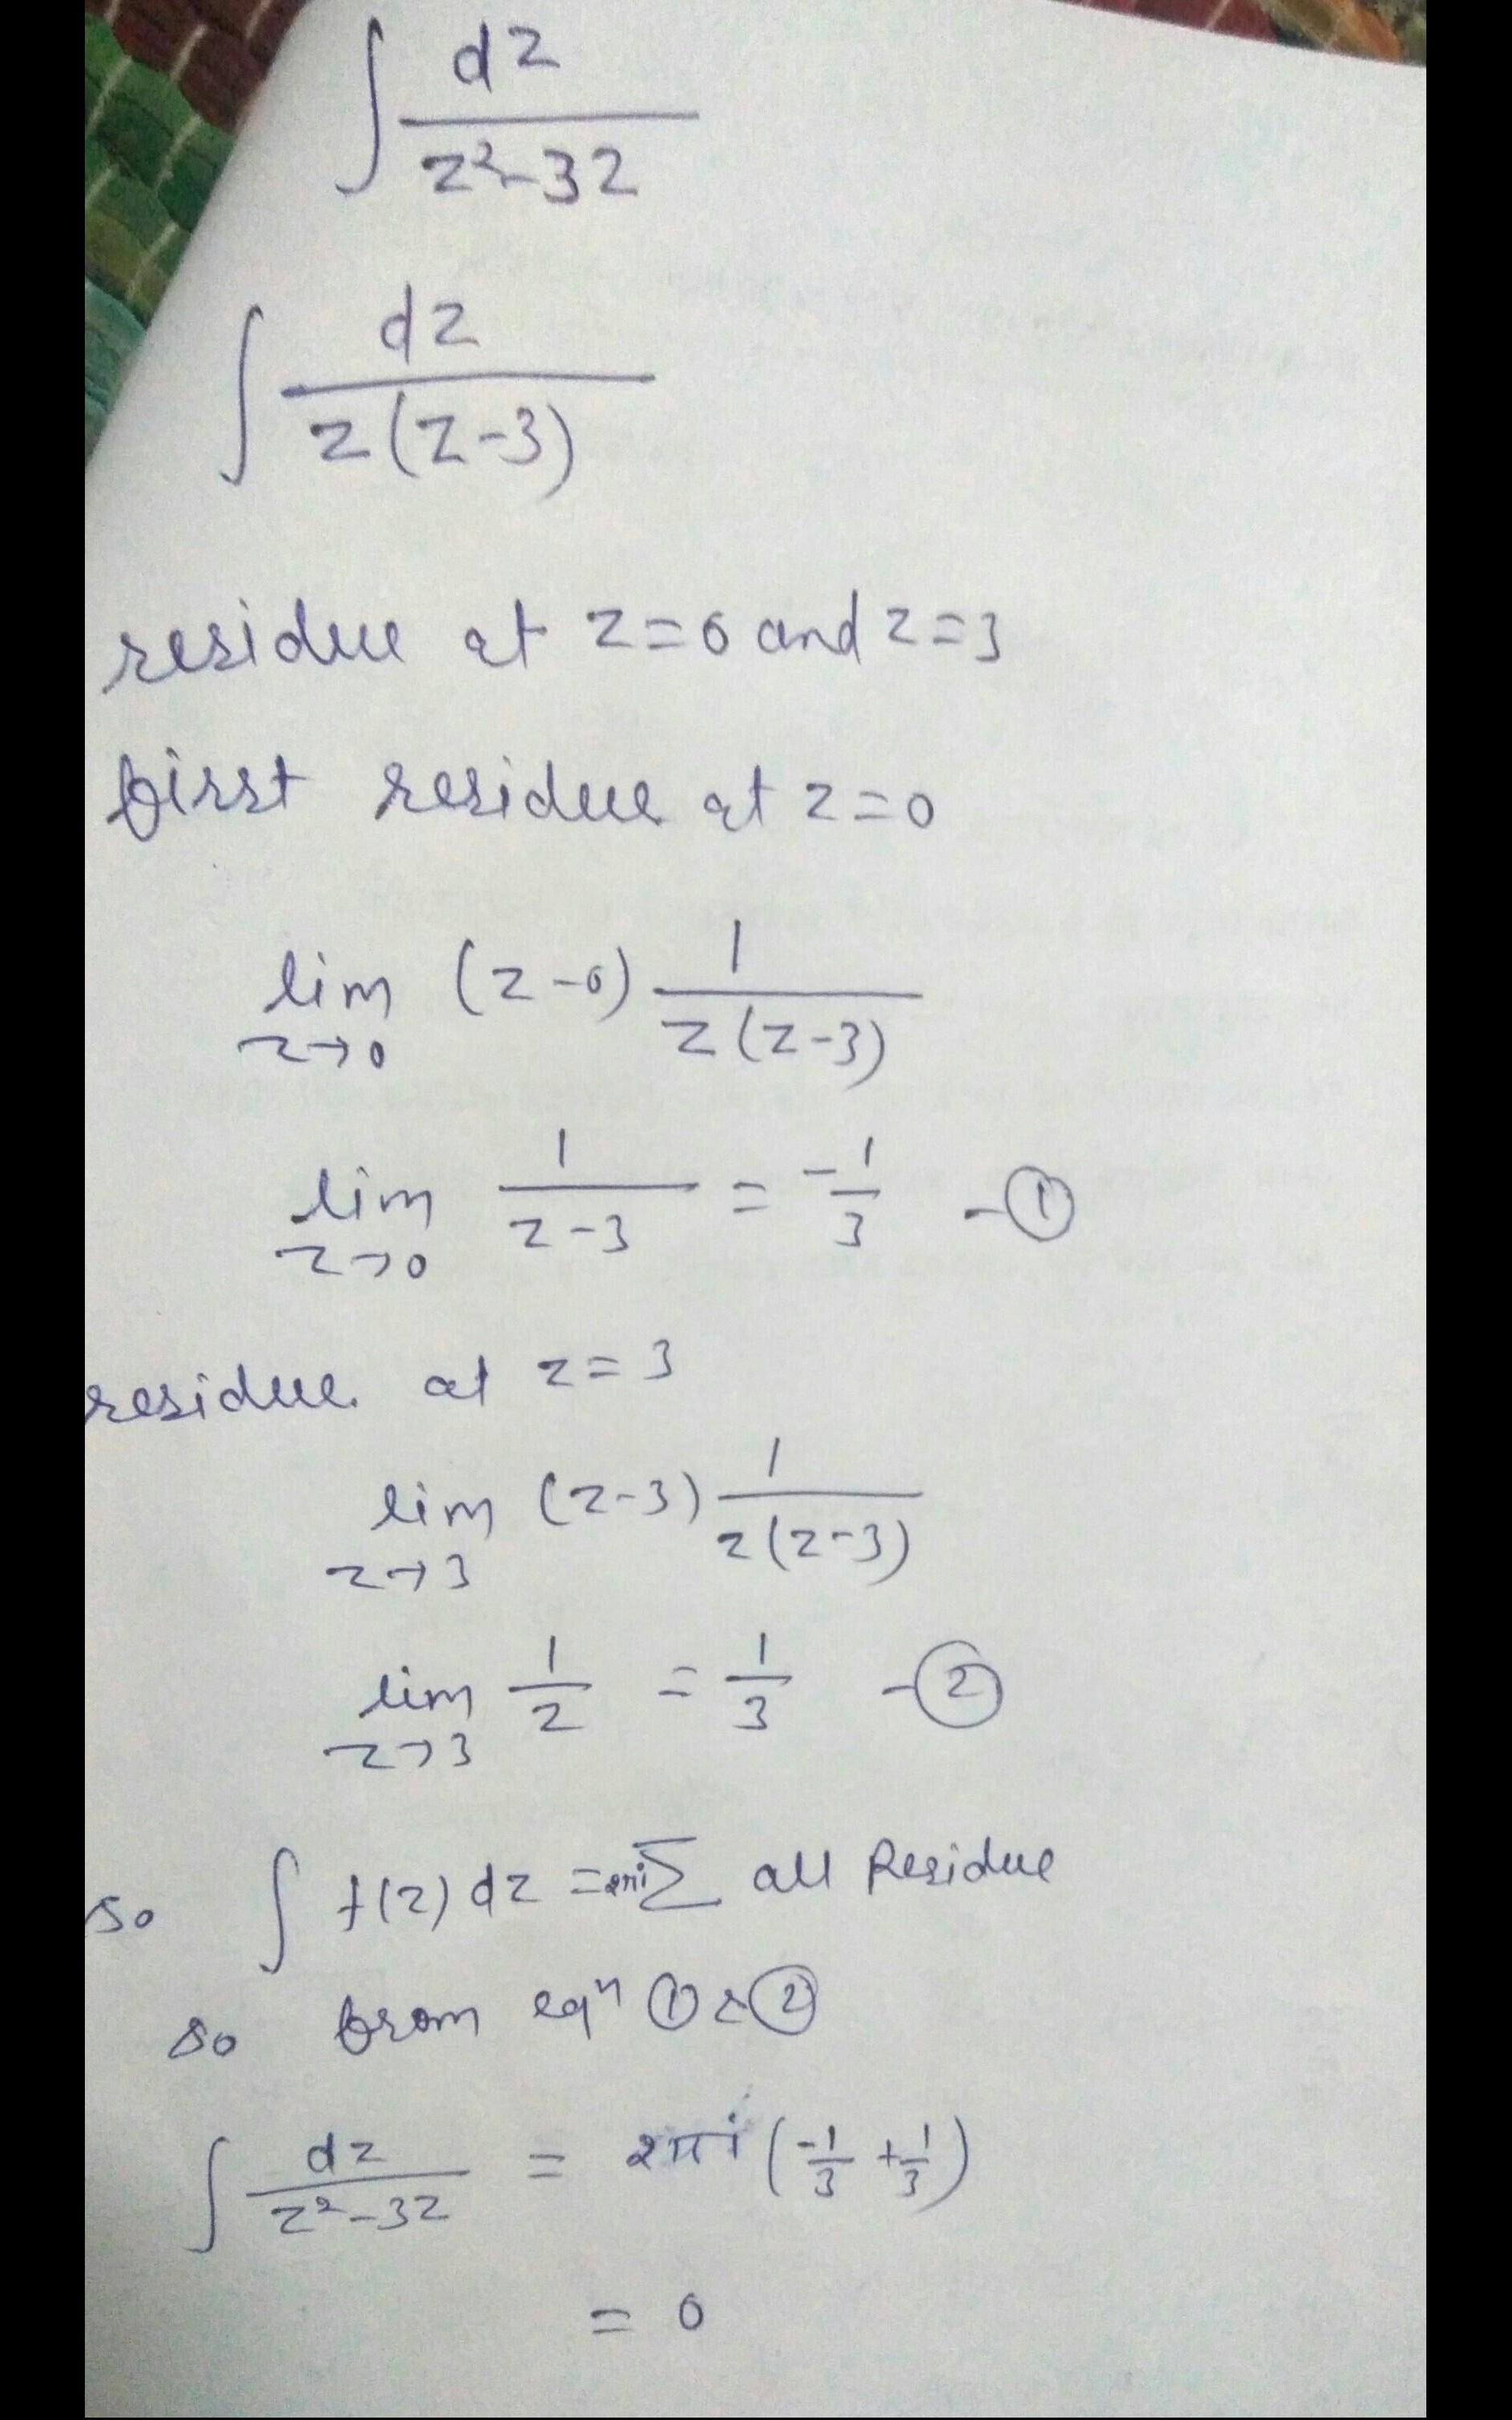 ∫ dz / z²-3z
∫ dz / z(z-3)
residue at z=0 and z=3
first residue at z=0
lim z→0 (z-0) 1 / z(z-3)
lim z→0 1 / z-3 = -1/3 -①
residue at z=3
lim z→3 (z-3) 1 / z(z-3)
lim z→3 1/z = 1/3 -②
so ∫ f(z) dz = 2πi Σ all Residue
so from eqⁿ ① & ②
∫ dz / z²-3z = 2πi (-1/3 + 1/3)
= 0